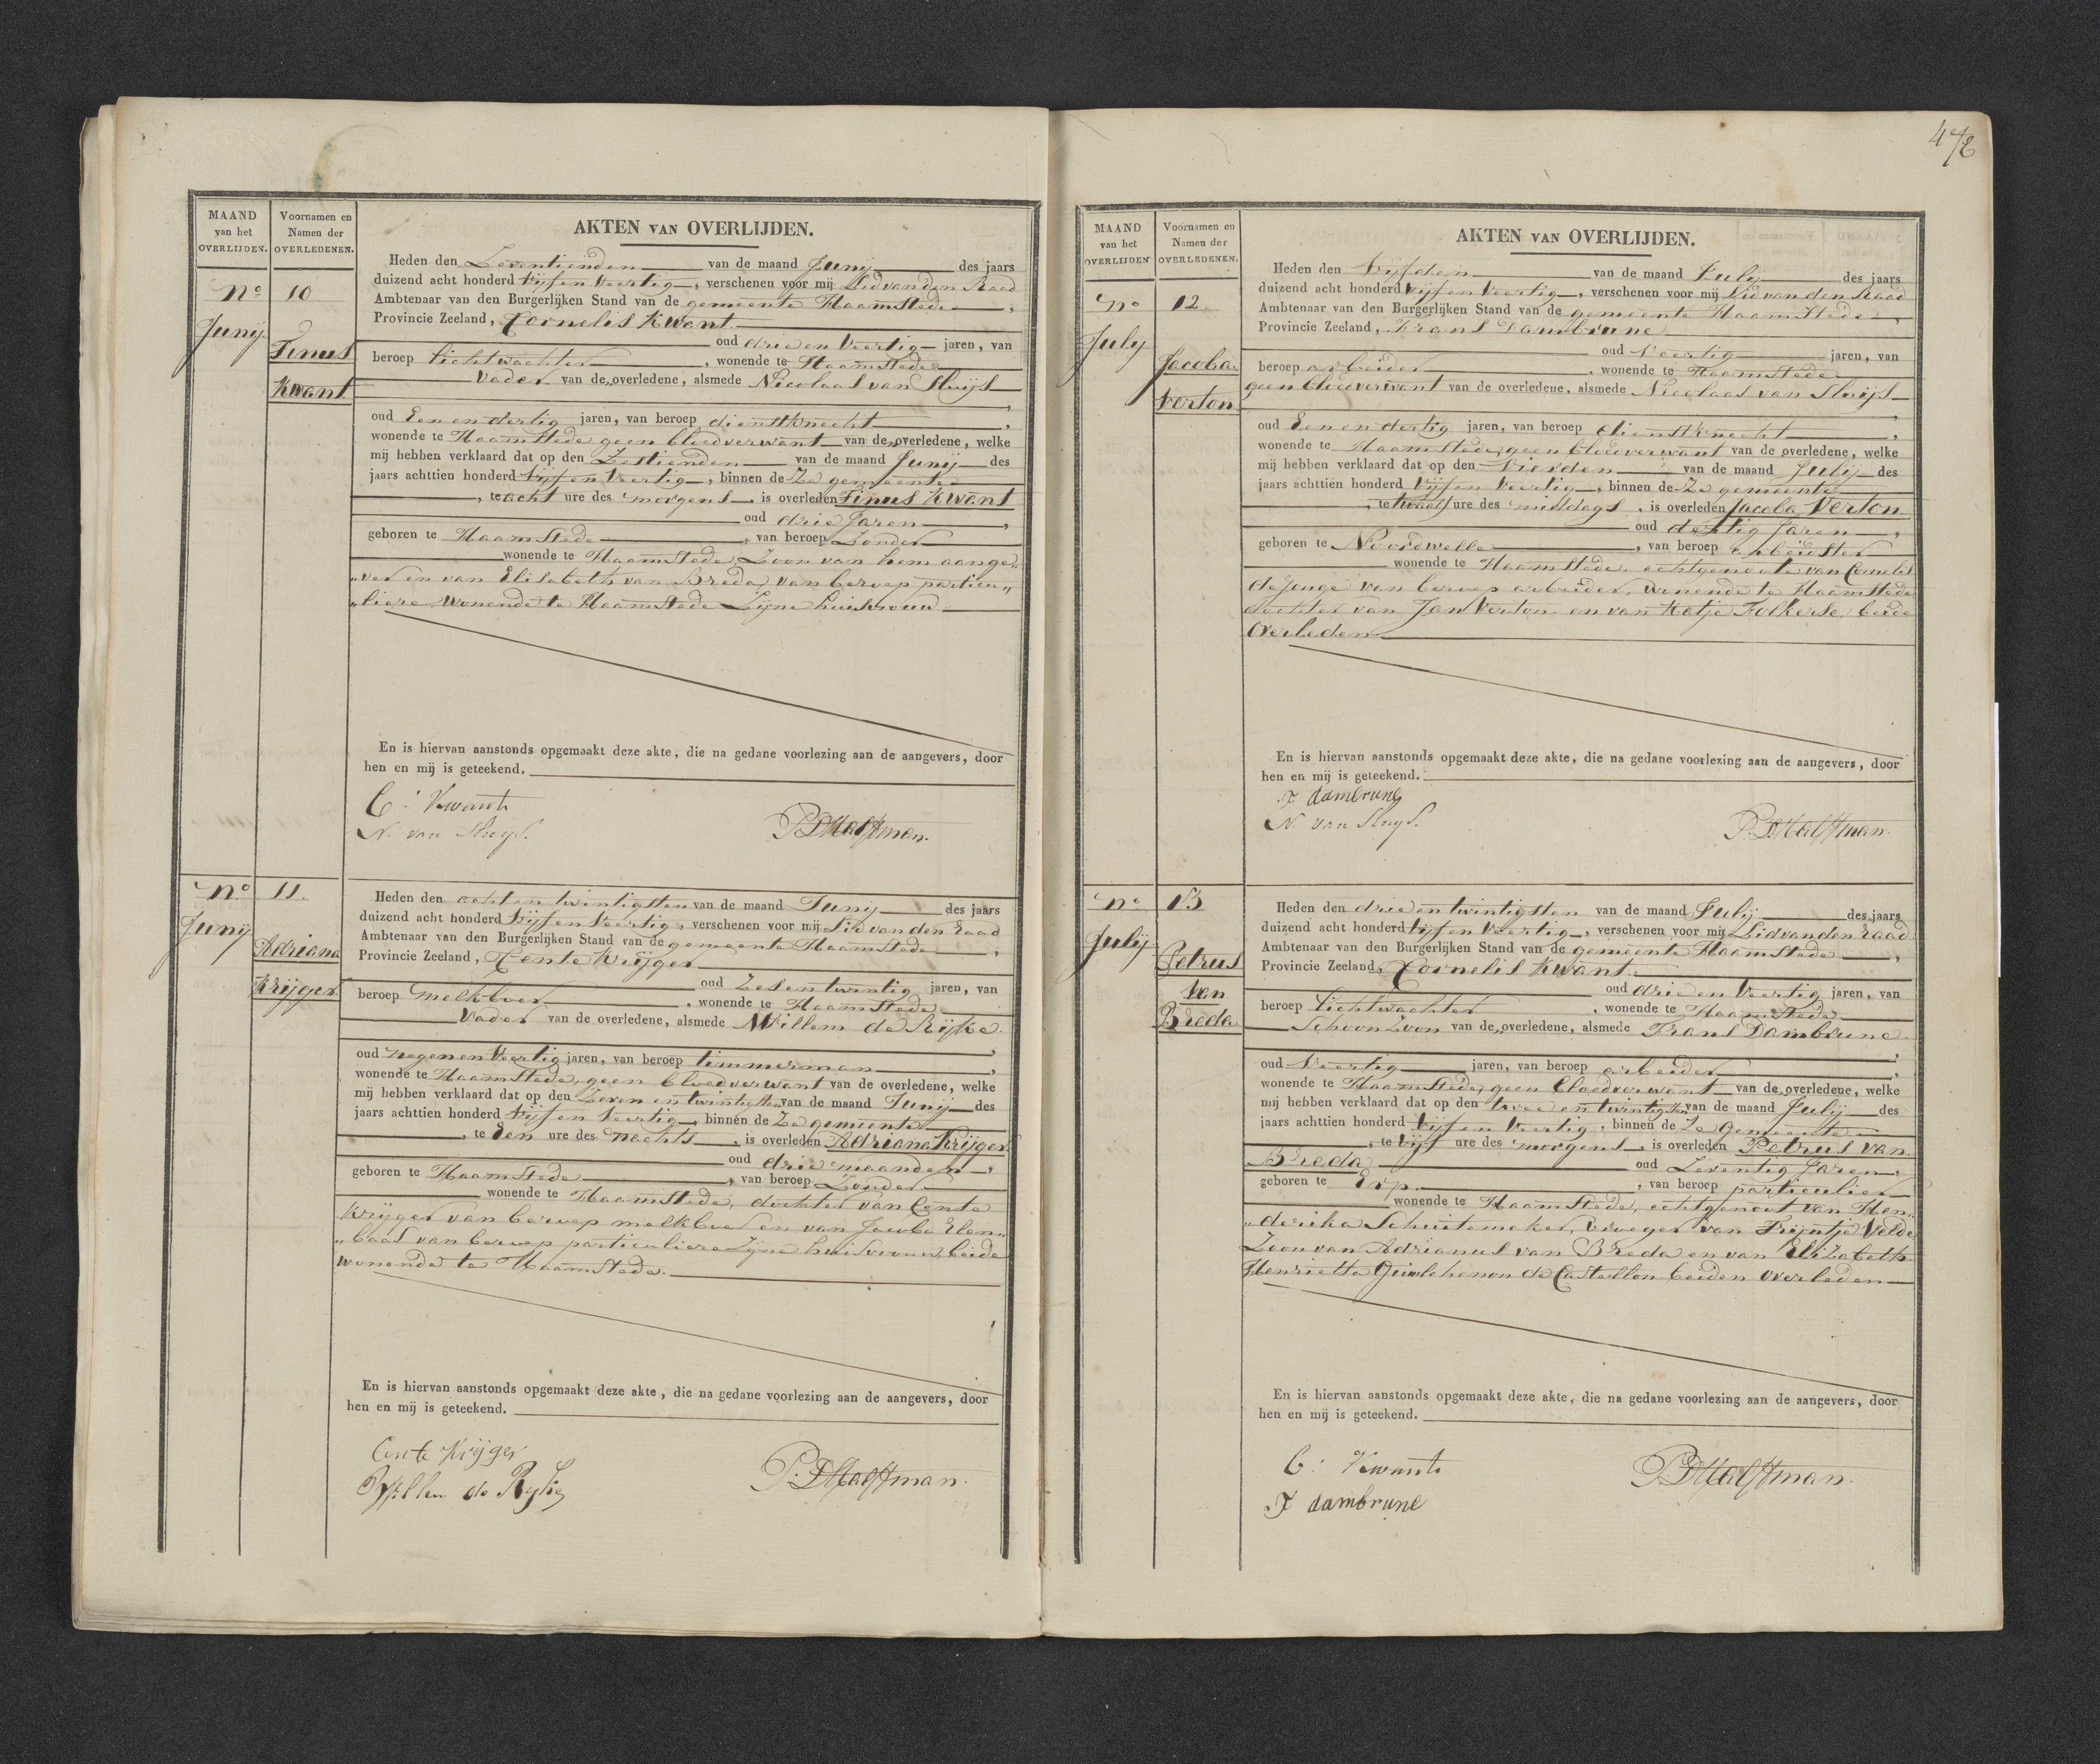 MAAND van het OVERLIJDEN.
Voornamen en Namen der OVERLEDENEN.
AKTEN VAN OVERLIJDEN.
No 10
Junij
Tinus
Kwant
Heden den Zeventienden van de maand Junij des jaars
duizend acht honderd Vijf en Veertig, verschenen voor mij Lid van den Raad
Ambtenaar van den Burgerlijken Stand van de gemeente Haamstede,
Provincie Zeeland, Cornelis Kwant
oud drie en Veertig jaren, van
beroep lichtwachter, wonende te Haamstede
Vader van de overledene, alsmede Nicolaas van Sluijs
oud Een en dertig jaren, van beroep dienstknecht,
wonende te Haamstede geen bloedverwant van den overledene, welke
mij hebben verklaard dat op den Zestienden van de maand Junij des
jaars achttien honderd Vijf en Veertig, binnen de Ze gemeente
, te acht ure des morgens is overleden Tinus Kwant
oud drie Jaren,
geboren te Haamstede, van beroep Zonder
wonende te Haamstede, Zoon van hem aange„
„ver en van Elisabeth van Breda, van beroep particu„
„liere wonende te Haamstede Zijne huisvrouw.
En is hiervan aanstonds opgemaakt deze akte, die na gedane voorlezing aan de aangevers, door
hen en mij is geteekend.
C: Kwant
N. van Sluys.
P. D. Halffman.
No 11.
Junij
Adriana
Krijger
Heden den acht en twintigsten van de maand Junij des jaars
duizend acht honderd Vijf en Veertig, verschenen voor mij Lid van den Raad
Ambtenaar van den Burgerlijken Stand van de gemeente Haamstede,
Provincie Zeeland, Cente Krijger
oud Zes en twintig jaren, van
beroep melkboer, wonende te Haamstede
Vader van de overledene, alsmede Willem de Rijke
oud negen en Veertig jaren, van beroep timmerman,
wonende te Haamstede, geen bloedverwant van de overledene, welke
mij hebben verklaard dat op den Zeven en twintigsten van de maand Junij des
jaars achttien honderd Vijf en Veertig, binnen de Ze gemeente
, te Een ure des nachts, is overleden Adriana Krijger
oud drie maanden,
geboren te Haamstede, van beroep Zonder
wonende te Haamstede, dochter van Cente
Krijger van beroep melkboer en van Jacoba Elen„
„baas van beroep particuliere Zijne huisvrouw, beide
wonende te Haamstede.
En is hiervan aanstonds opgemaakt deze akte, die na gedane voorlezing aan de aangevers, door
hen en mij is geteekend.
Cente Krijger
Willem de Ryke
P. D. Halffman.
MAAND van het OVERLIJDEN
Voornamen en Namen der OVERLEDENEN.
AKTEN VAN OVERLIJDEN.
No 12.
July
Jacoba
Verton
Heden den Vijfden van de maand Julij des jaars
duizend acht honderd Vijf en Veertig, verschenen voor mij Lid van den Raad
Ambtenaar van den Burgerlijken Stand van de gemeente Haamstede,
Provincie Zeeland, Frans Dambrune
oud Veertig jaren, van
beroep arbeider, wonende te Haamstede
geen bloedverwant van de overledene, alsmede Nicolaas van Sluijs
oud Een en dertig jaren, van beroep dienstknecht,
wonende te Haamstede, geen bloedverwant van de overledene, welke
mij hebben verklaard dat op den Vierden van de maand July des
jaars achttien honderd Vijf en Veertig, binnen de Ze gemeente
, te twaalf ure des middags, is overleden Jacoba Verton
oud dertig Jaren,
geboren te Noordwelle, van beroep arbeidster
wonende te Haamstede, echtgenoote van Cornelis
de Jonge van beroep arbeider, wonende te Haamstede
dochter van Jan Verton en van Katje Folkerse, beide
Overleden
En is hiervan aanstonds opgemaakt deze akte, die na gedane voorlezing aan de aangevers, door
hen en mij is geteekend.
F dambrune
N. van Sluys.
P. D. Halffman.
No 13
Julij
Petrus
Van
Breda
Heden den drie en twintigsten van de maand Julij des jaars
duizend acht honderd Vijf en Veertig, verschenen voor mij Lid van den Raad
Ambtenaar van den Burgerlijken Stand van de gemeente Haamstede,
Provincie Zeeland, Cornelis Kwant
oud drie en Veertig jaren, van
beroep lichtwachter, wonende te Haamstede
Schoon Zoon van den overledene, alsmede Frans Dambrune
oud Veertig jaren, van beroep arbeider,
wonende te Haamstede, geen bloedverwant van de overledene, welke
mij hebben verklaard dat op den twee en twintigsten van de maand Julij des
jaars achttien honderd Vijf en Veertig, binnen de Ze Gemeente
, te Vijf ure des morgens, is overleden Petrus van
Breda oud Zeventig Jaren,
geboren te Erp., van beroep particulier
wonende te Haamstede, echtgenoot van Hen„
„derika Schuitemaker, Vroeger van Trijntje Velde
Zoon van Adrianus van Breda en van Elizabeth
Henrietta de Castellon beiden overleden
En is hiervan aanstonds opgemaakt deze akte, die na gedane voorlezing aan de aangevers, door
hen en mij is geteekend.
C: Kwant
F dambrune
P. D. Halffman.